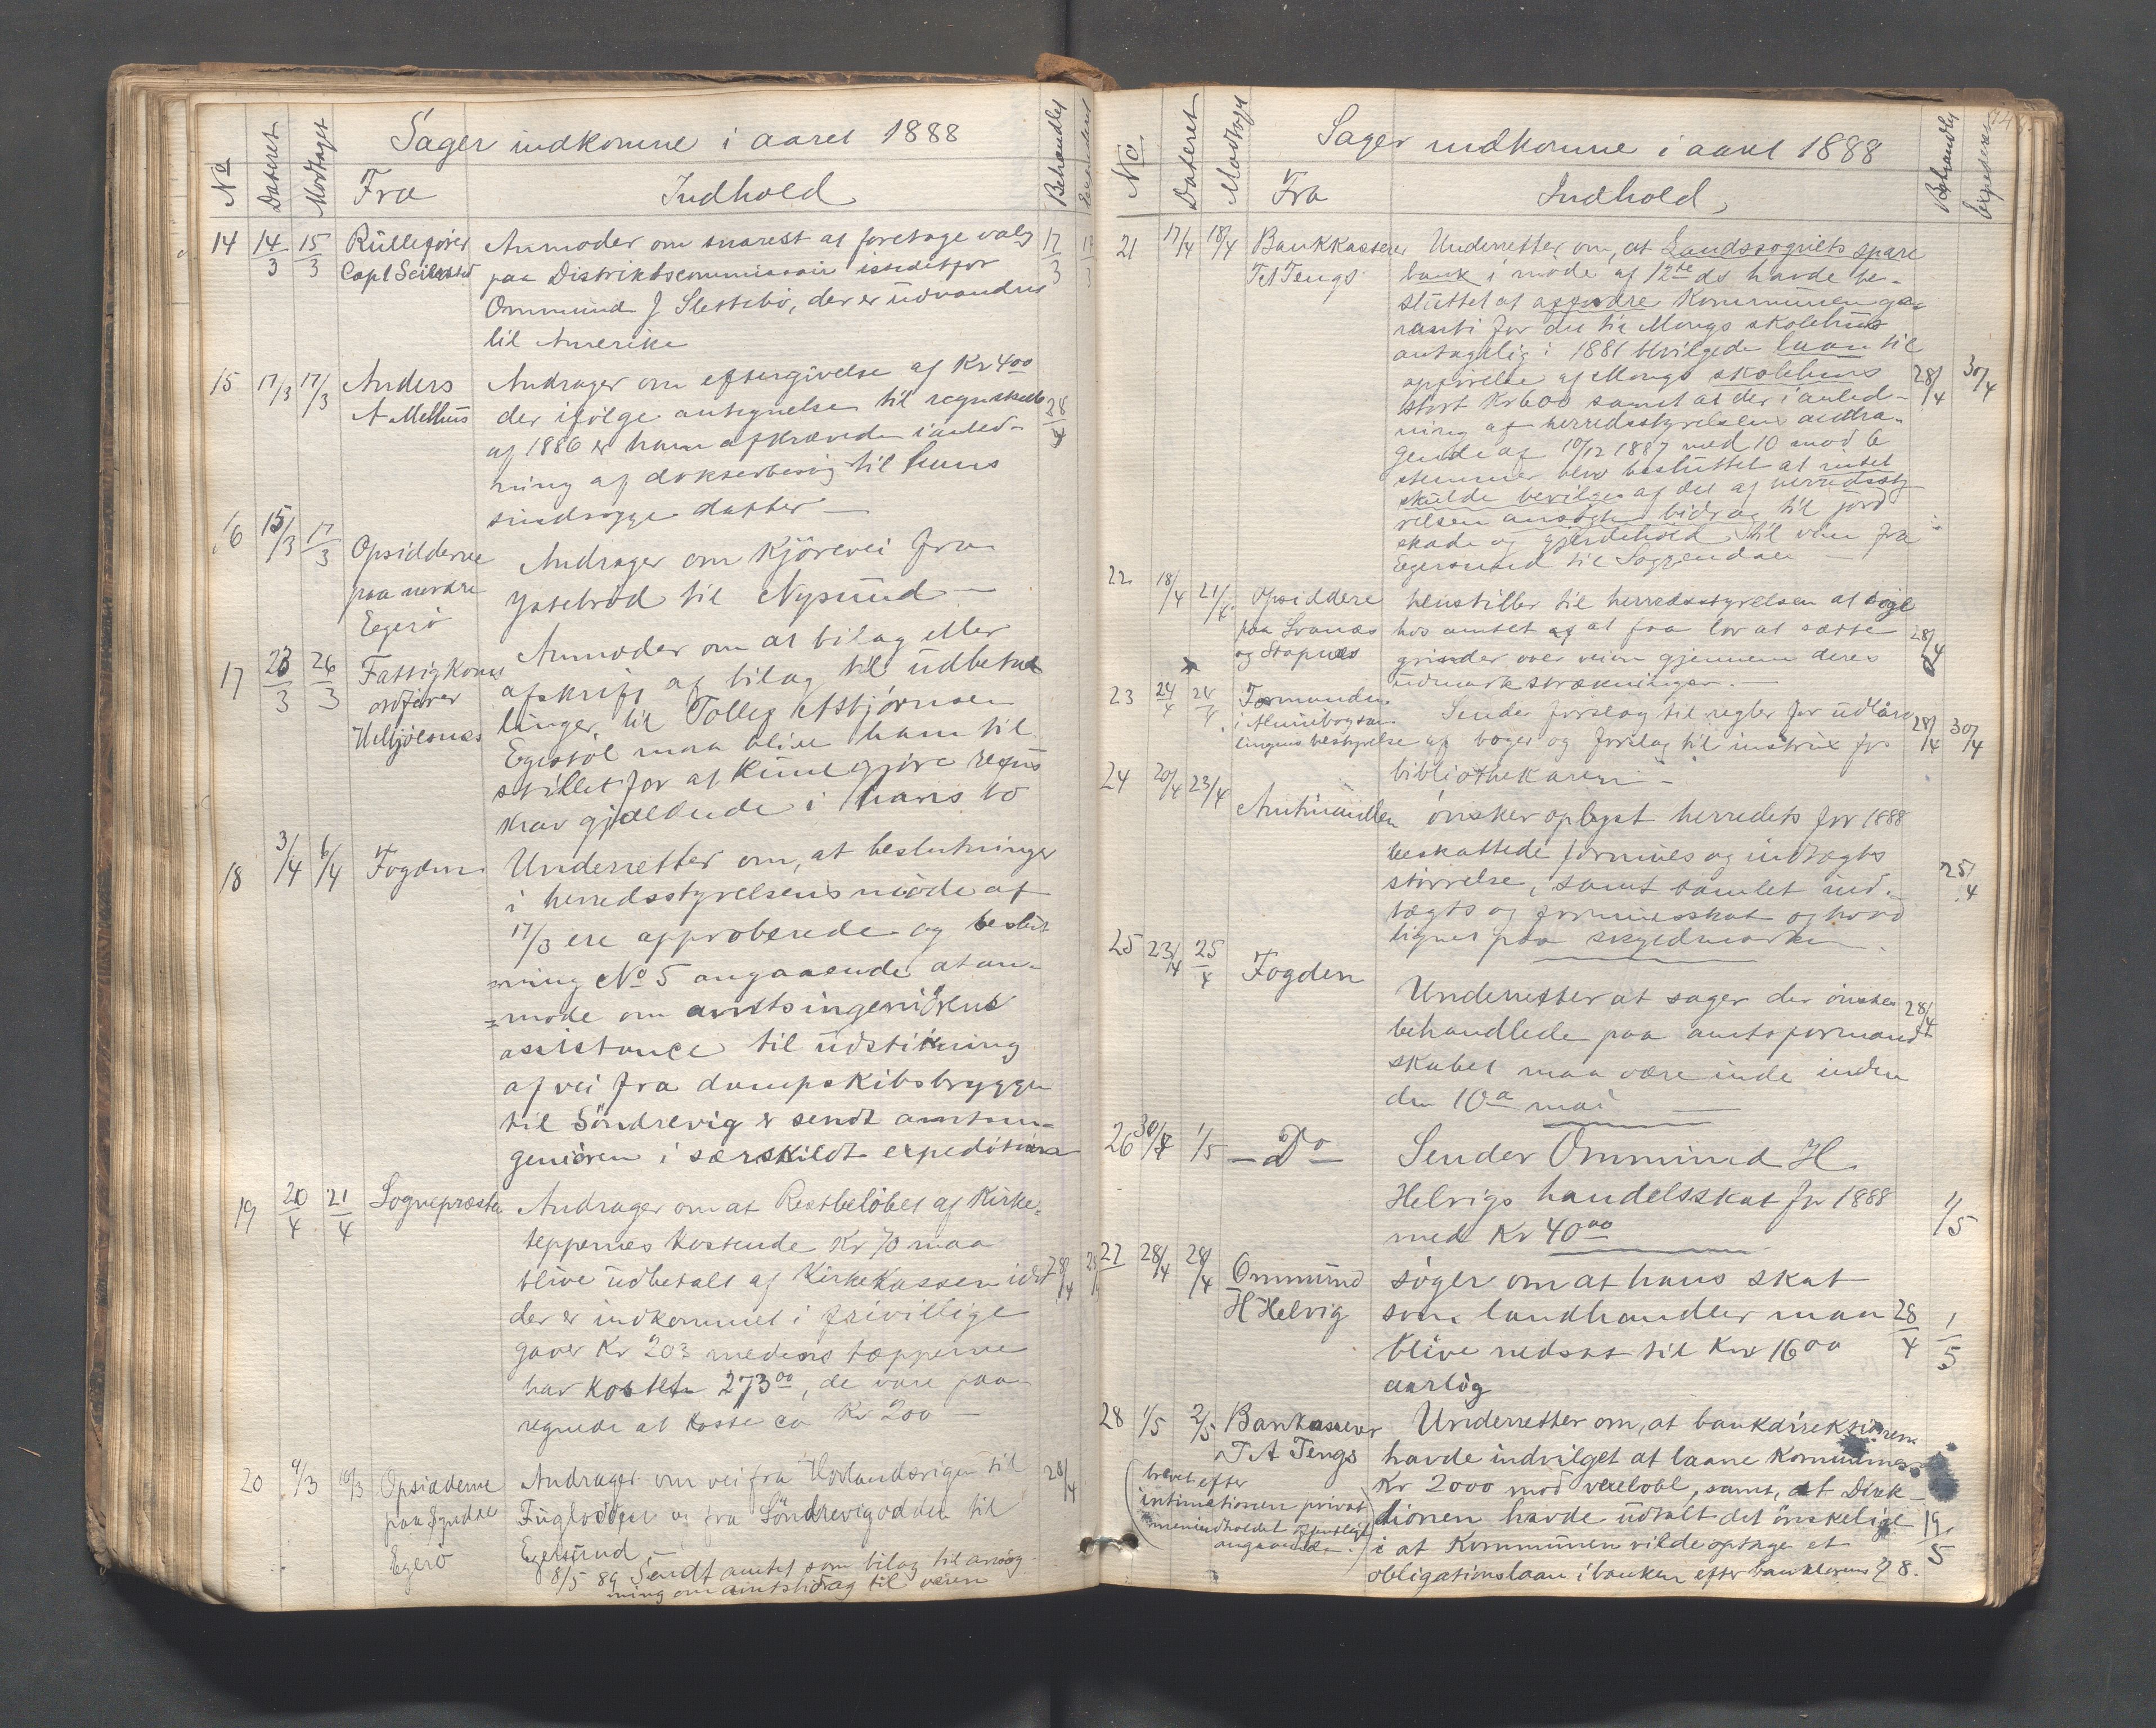 Sager indkomne i aaret 1888
No Dateret Modtaget Fra Indhold Behandlet
14 14/3 15/3 Rullefører Anmoder om snarest at foretage valg 17/3
Capt Seilested paa Distriktscommissair istedetfor
Ommund J Slettebö, der er udvandret
til Amerika
15 17/3 17/3 Anders Andrager om eftergivelse af Kr 4 00
A Mellhus der ifölge antegnelse til regnskab 28/4
af 1886 er ham afkrævede i anled-
ning af doktorbesög til hans
sindsyge datter —
16 15/3 17/3 Opsidderne Andrager om Kjörevei fra
paa nordre Ystebröd til Nysund —
Egerö
17 23/3 26/3 Fattigkoms Anmoder om at bilag eller
ordfører afskrift af bilag til udbetal
linger til Tolleg Asbjörnsen
Egestöl maa blive ham til
stillet for at kunne gjöre refus
krav gjældende i hans bo
18 3/4 6/4 Fogden Underretter om, at beslutninger
i herredsstyrelsens möde af
17/3 ere approberede og beslut
ning No 5 angaaende at an-
=mode om amtsingeniörens
assistance til udstikning
af vei fra dampskibsbryggen
til Söndrevig er sendt amtsin-
geniören i særskildt expedition
19 20/4 21/4 Sognepræsten Andrager om at Restbelöbet af Kirke-
teppernes kostende Kr 70 maa
blive udbetalt af Kirkekassen idet 28/4
der er indkommet i frivillige
gaver Kr 203 medens tæpperne
har kostet 273 00, de vare paa-
regnede at koste ca Kr 200 —
20 9/3 10/3 Opsidderne Andrager om vei fra Hovlandsvigen til 28/4
paa syndre Fuglodden og fra Söndrevigodden til
Egerö Egersund —
8/5 89 Sendt amtet som bilag til ansög-
ning om amtsbidrag til veien

Sager indkomne i aaret 1888
No. Dateret Modtaget Fra Indhold Behandlet Expederet
21 17/4 18/4 Bankkasserer Underretter om, at Landssognets spare
T A Tengs bank i möde af 12te ds havde be-
sluttet at affordre Kommunen ga-
ranti for det til Mongs skolehus
antagelig i 1881 bevilgede laan til
opförelse af Mongs skolehus
stort Kr 600 samt at der i anled- 28/4 30/4
ning af herredsstyrelsens andra-
gende af 10/12 1887 med 10 mod 6
stemmer blev besluttet at intet
skulde bevilges af det af herredssty-
relsen ansögte bidrag til jord
skade og gjerdehold til veien fra
Egersund til Soggendal
22 18/4 21/4 Opsiddere henstiller til herredsstyrelsen at söge
paa Svanæs hos amtet af at faa lov at sætte 28/4
og Stapnæs grinder over veien gjennem deres
udmarkstrækninger. —
23 24/4 24/4 Formanden Sender forslag til regler for udlaan 28/4 30/4
i Almuebogsam
lingens bestyrelse af böger og forslag til instrux for
bibliothekaren —
24 20/4 23/4 Amtmanden önsker oplyst herredets for 1888
beskattede formues og indtægts 25/4
störrelse, samt samlet ind-
tægts og formuesskat og hvad
lignet paa skyldmarken
25 23/4 25/4 Fogden Underretter at sager der önskes 28/4
behandlede paa amtsformand
skabet maa være inde inden
den 10de mai —
26 30/4 1/5 — Do — Sender Ommund H
Helvigs handelsskat for 1888 1/5
med Kr 40 00
27 28/4 28/4 Ommund söger om at hans skat
H Helvig som landhandler maa 28/4 1/5
blive nedsat til Kr 16 00
aarlig
28 1/5 2/5 Bankasserer Underretter om, at bankdirektionen
T A Tengs havde indvilget at laane Kommunen
(brevet efter Kr 2000 mod vexelobl, samt, at Direk-
intimationen privat tionen havde udtalt det önskelige 19/5
men indholdet offentligt
angaaende) i at Kommunen vilde optage et
obligationslaan i banken efter banklovens § 8.